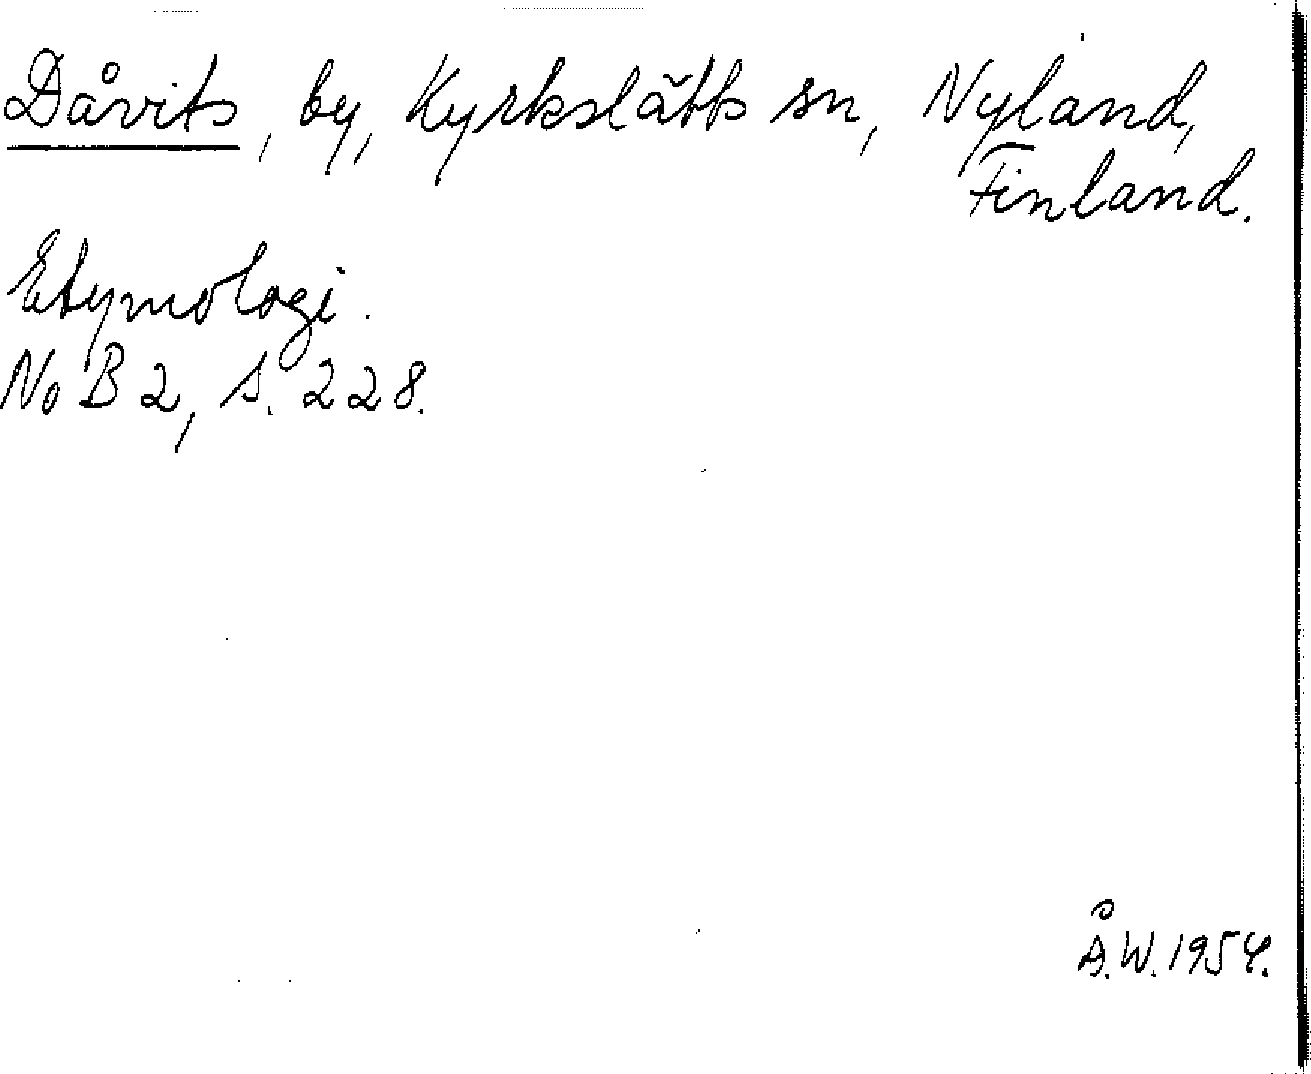 Dåvits, by, Kyrkslätts sn, Nyland,
Finland.
Etymologi.
NoB 2, s. 228.
Å.W. 1954.